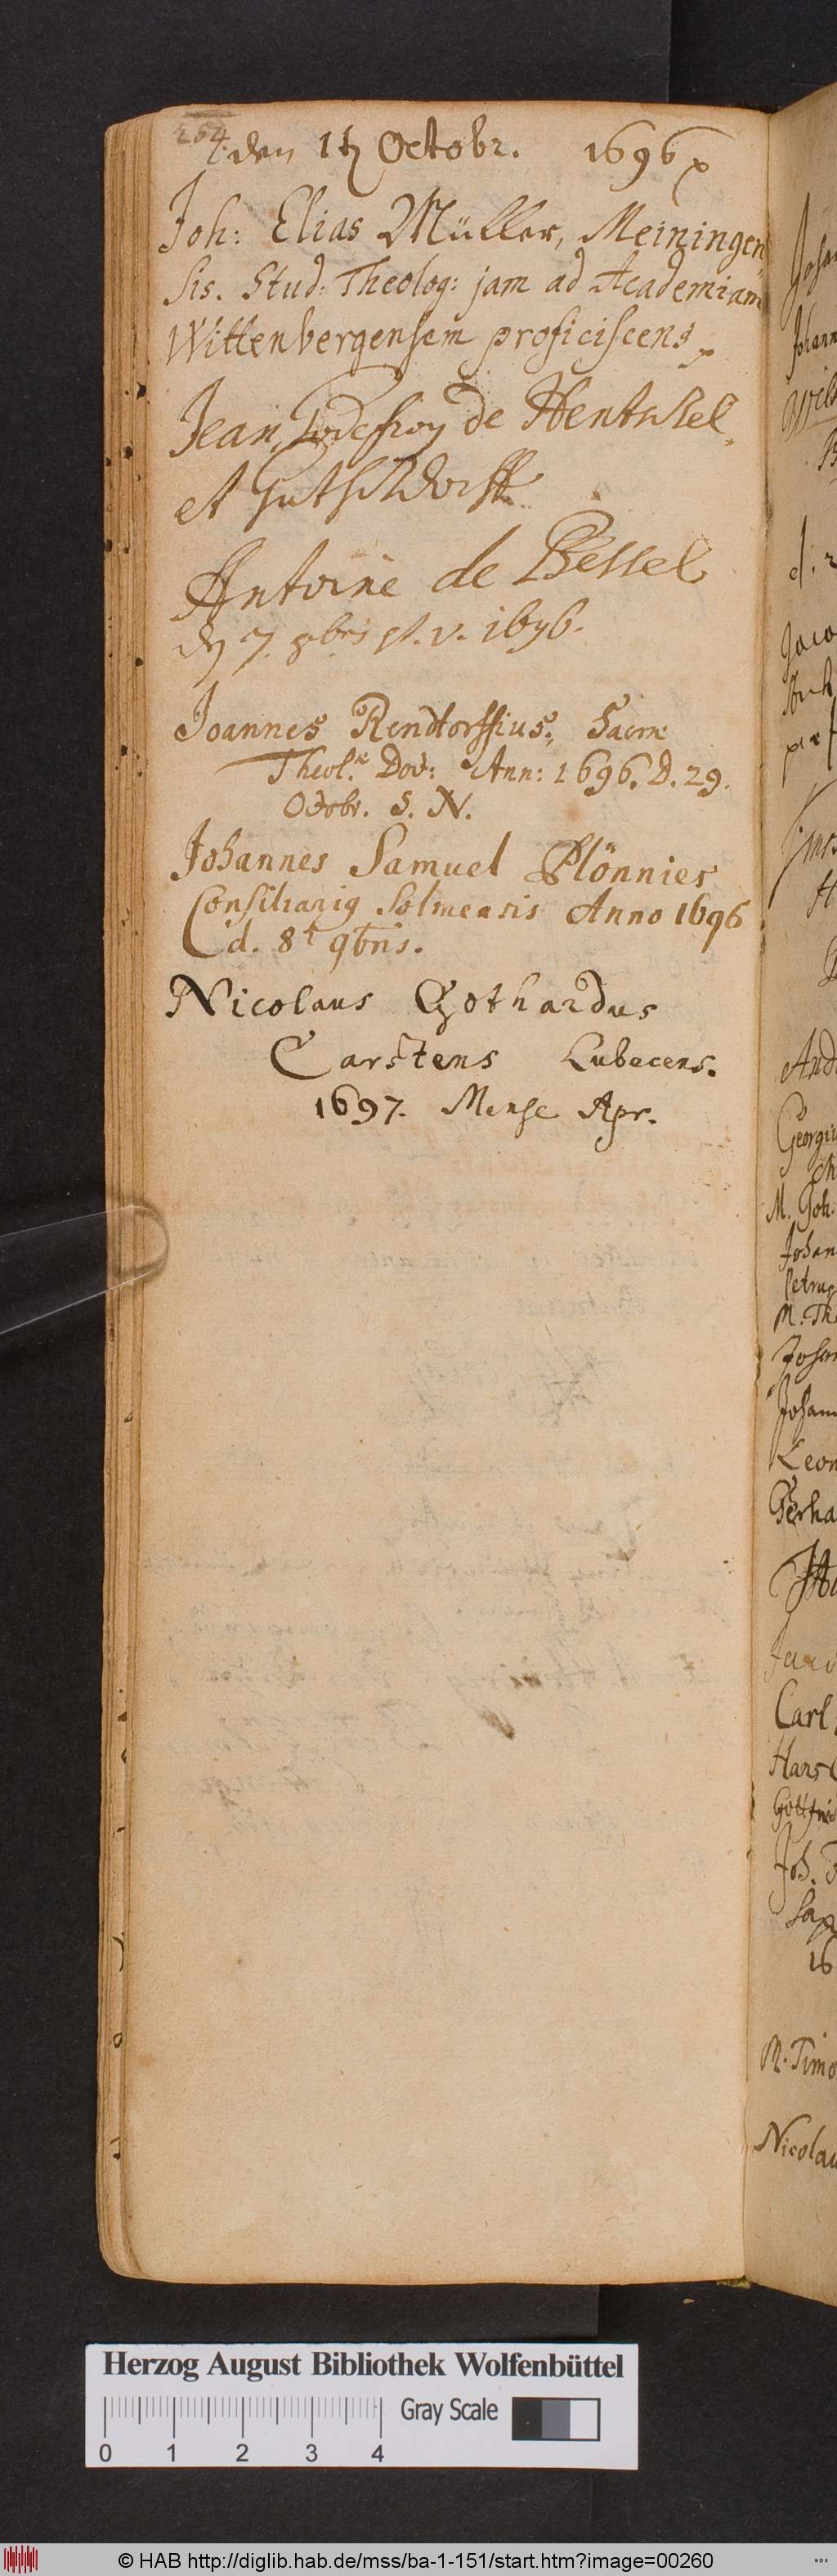 264
den 17 Octobr. 1696
Joh: Elias Müller, Meiningen
sis. Stud: Theolog: jam ad Academiam
Wittenbergensem proficiscens,
Jean Godefroy de Hentschel
et Gutschdorff
Antoine de Bessel
d 7. 8bris st. v. 1696.
Joannes Rendtorffius, Sacræ
Theol.æ Doct: Ann: 1696. D. 29.
Octobr. S. N.
Johannes Samuel Plönnies
Consiliarig Solmensis Anno 1696
d. 8t 9bris.
Nicolaus Gothardus
Carstens Lubecens.
1697. Mense Apr.
Johann
Wil
Jaco
And
Georgi
M. Joh.
Johan
Petrus
M. Th
Johan
Johann
Leon
Gerha
Carl
Hans
Gottfri
Joh.
Sax
16
M. Timo
Nicolau
Herzog August Bibliothek Wolfenbüttel
Gray Scale
0 1 2 3 4
© HAB http://diglib.hab.de/mss/ba-1-151/start.htm?image=00260